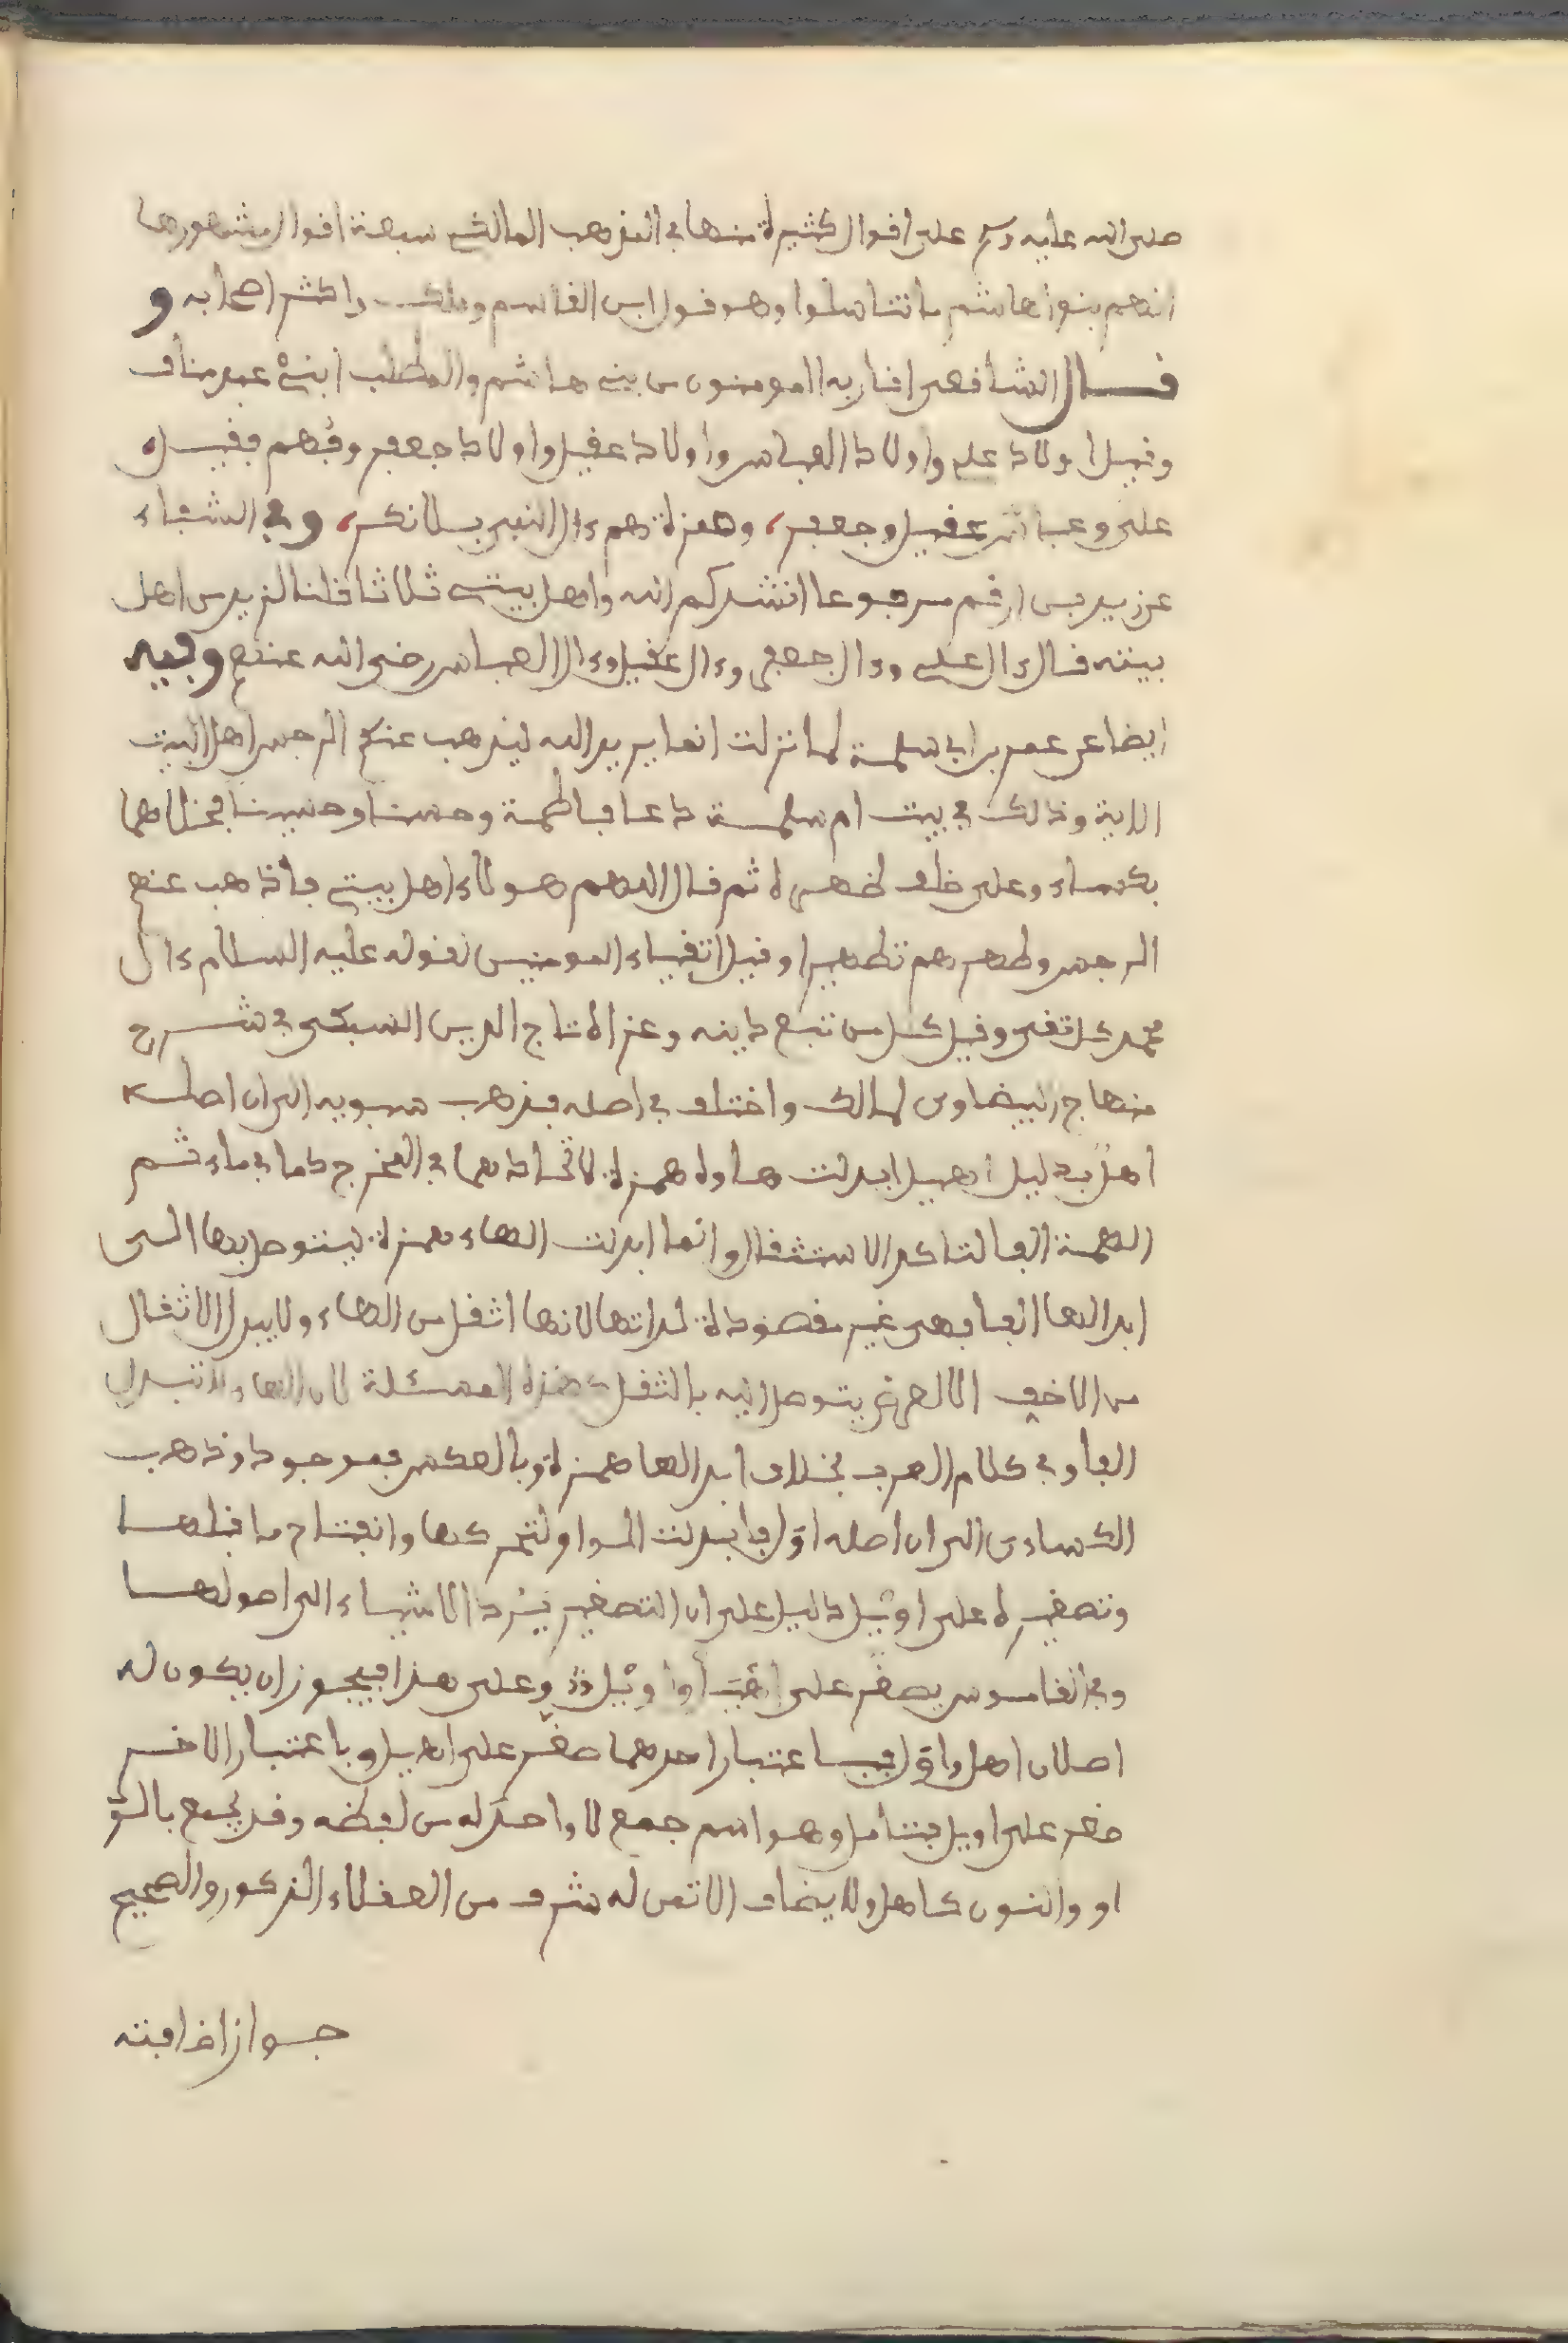 صلى الله عليه وسلم على اقوال كثيرة منها في المذهب المالكي سبعة اقوال مشهورها
انهم بنوا هاشم ما تناسلوا وهو قول ابن القاسم وملك واكثر اصحابه و
قال الشافعي اقاربه المومنون من بني هاشم والمطلب ابني عبد مناف
وقيل اولاد علي واولاد العباس واولاد عقيل واولاد جعفر وفيهم فقيل
علي وعباس عقيل وجعفر، وحمزة هم ءال النبي بلا نكر، وفي الشفاء
عن زيد بن ارقم مرفوعا انشدكم الله واهل بيتي ثلاثا قلنا لزيد من اهل
بيته قال ءال علي وءال جعفر وءال عقيل وءال العباس رضي الله عنهم وفيه
ايضا عن عمر بن ابي سلمة لما نزلت انما يريد الله ليذهب عنكم الرجس اهل البيت
الاية وذالك في بيت ام سلمة دعا فاطمة وحسنا وحسينا فجللهما
بكساء وعلى خلف ظهره ثم قال اللهم هولاء اهل بيتي فاذهب عنهم
الرجس وطهرهم تطهيرا وقيل اتقياء المومنين لقوله عليه السلام ءال
محمد كل تقي وقيل كل من تبع دينه وعزاه تاج الدين السبكي في شرح
منهاج البيضاوي لمالك واختلف في اصله فذهب سبويه الى ان اصله
اهل بدليل اهيل ابدلت هاوه همزة لاتحادهما في المخرج كما في ماء ثم
الهمزة الفا لتاكد الاستثقال وانما ابدلت الهاء همزة ليتوصل بها الى
ابدالها الفا فهي غير مقصودة لذاتها لانها اثقل من الهاء ولا يبدل الاثقال
من الاخف الا لغرض يتوصل اليه بالثقل كهذه المسئلة لان الهاء لا تبدل
الفا في كلام العرب بخلاف ابدالها همزة وبالعكس فموجود وذهب
الكساءي الى ان اصله اول فابدلت الواو لتحركها وانفتاح ما قبلها
وتصغيره على اويل دليل على ان التصغير يرد الاشياء الى اصولها
وفي القاموس يصغر على اهيل او اويل وعلى هذا فيجوز ان يكون له
اصلان اهل واول فباعتبار احدهما صغر على اهيل وباعتبار الاخر
صغر على اويل فتامل وهو اسم جمع لا واحد له من لفظه وقد يجمع بالو
او والنون كاهل ولا يضاف الا لمن له شرف من العقلاء الذكور والصحيح
جواز اضافته